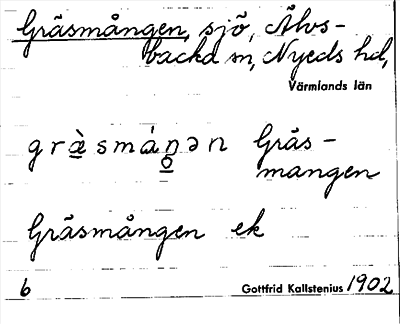 Gräsmången, sjö, Älvs-
backa sn, Nyeds hd,
Värmlands län
grὰ̱smánən Gräs-
mangen
Gräsmången ek
6 Gottfrid Kallstenius 1902